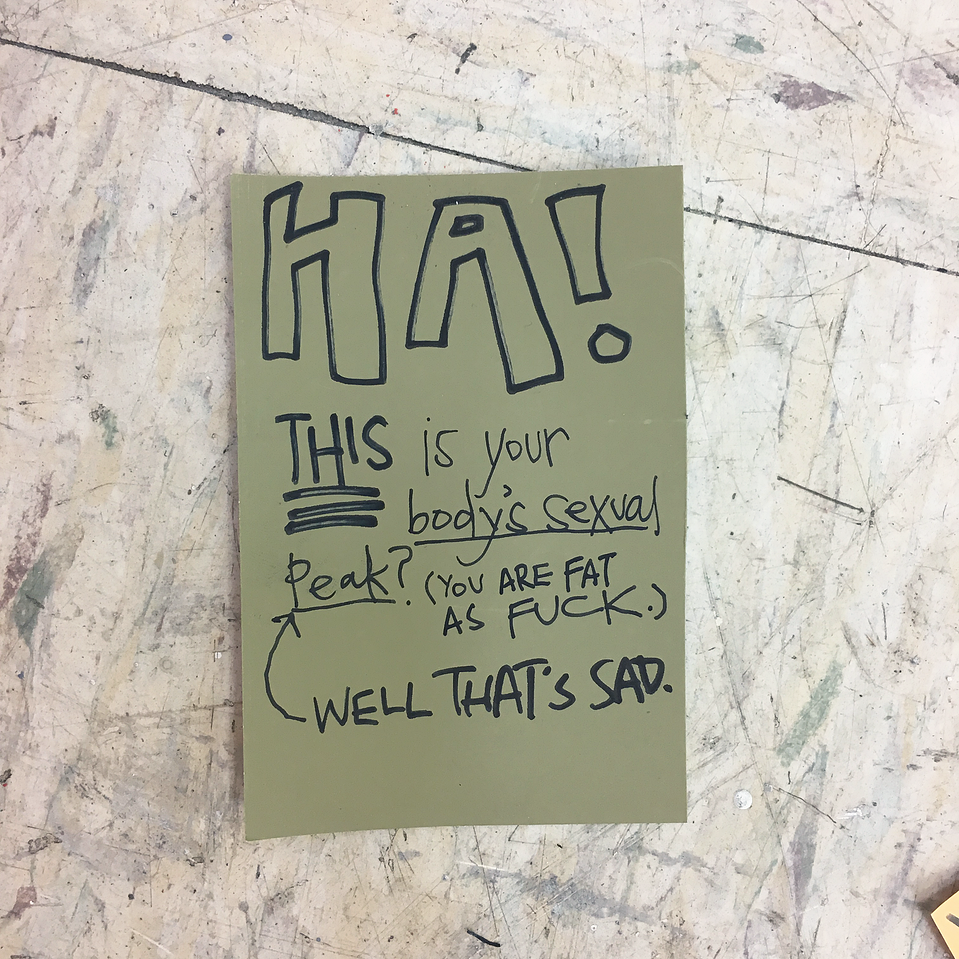 HA!
THIS is your
body's sexual
Peak? (YOU ARE FAT
AS FUCK.)
WELL THAT'S SAD.